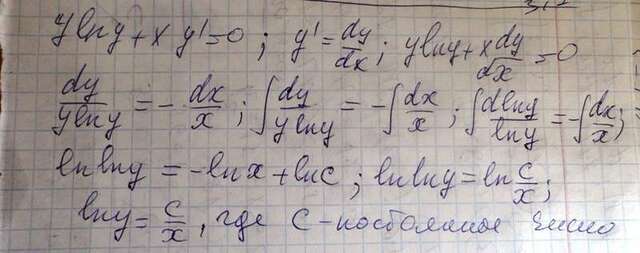 y ln y + x y' = 0 ; y' = dy/dx ; y ln y + x dy/dx = 0
dy/(y ln y) = - dx/x ; ∫ dy/(y ln y) = -∫ dx/x ; ∫ d ln y/ln y = -∫ dx/x ;
ln ln y = -ln x + ln c ; ln ln y = ln c/x ;
ln y = c/x , где c - постоянное число